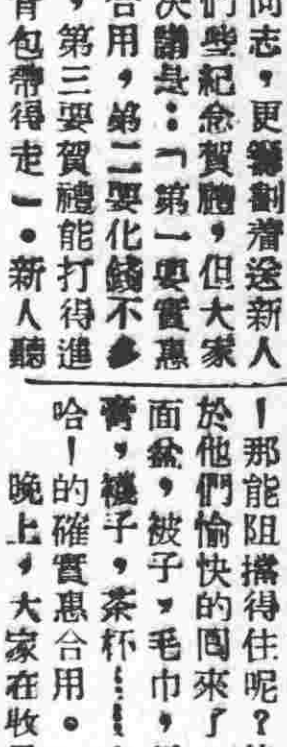 同志，更籌劃着送新人
們些紀念賀禮，但大家
決議是：「第一要實惠
合用，第二要化錢不多
，第三要賀禮能打得進
背包帶得走」。新人聽
！那能阻擋得住呢？
於他們愉快的回來了
面盆，被子，毛巾，
膏，襪子，茶杯……
哈！的確實惠合用。
晚上，大家在收